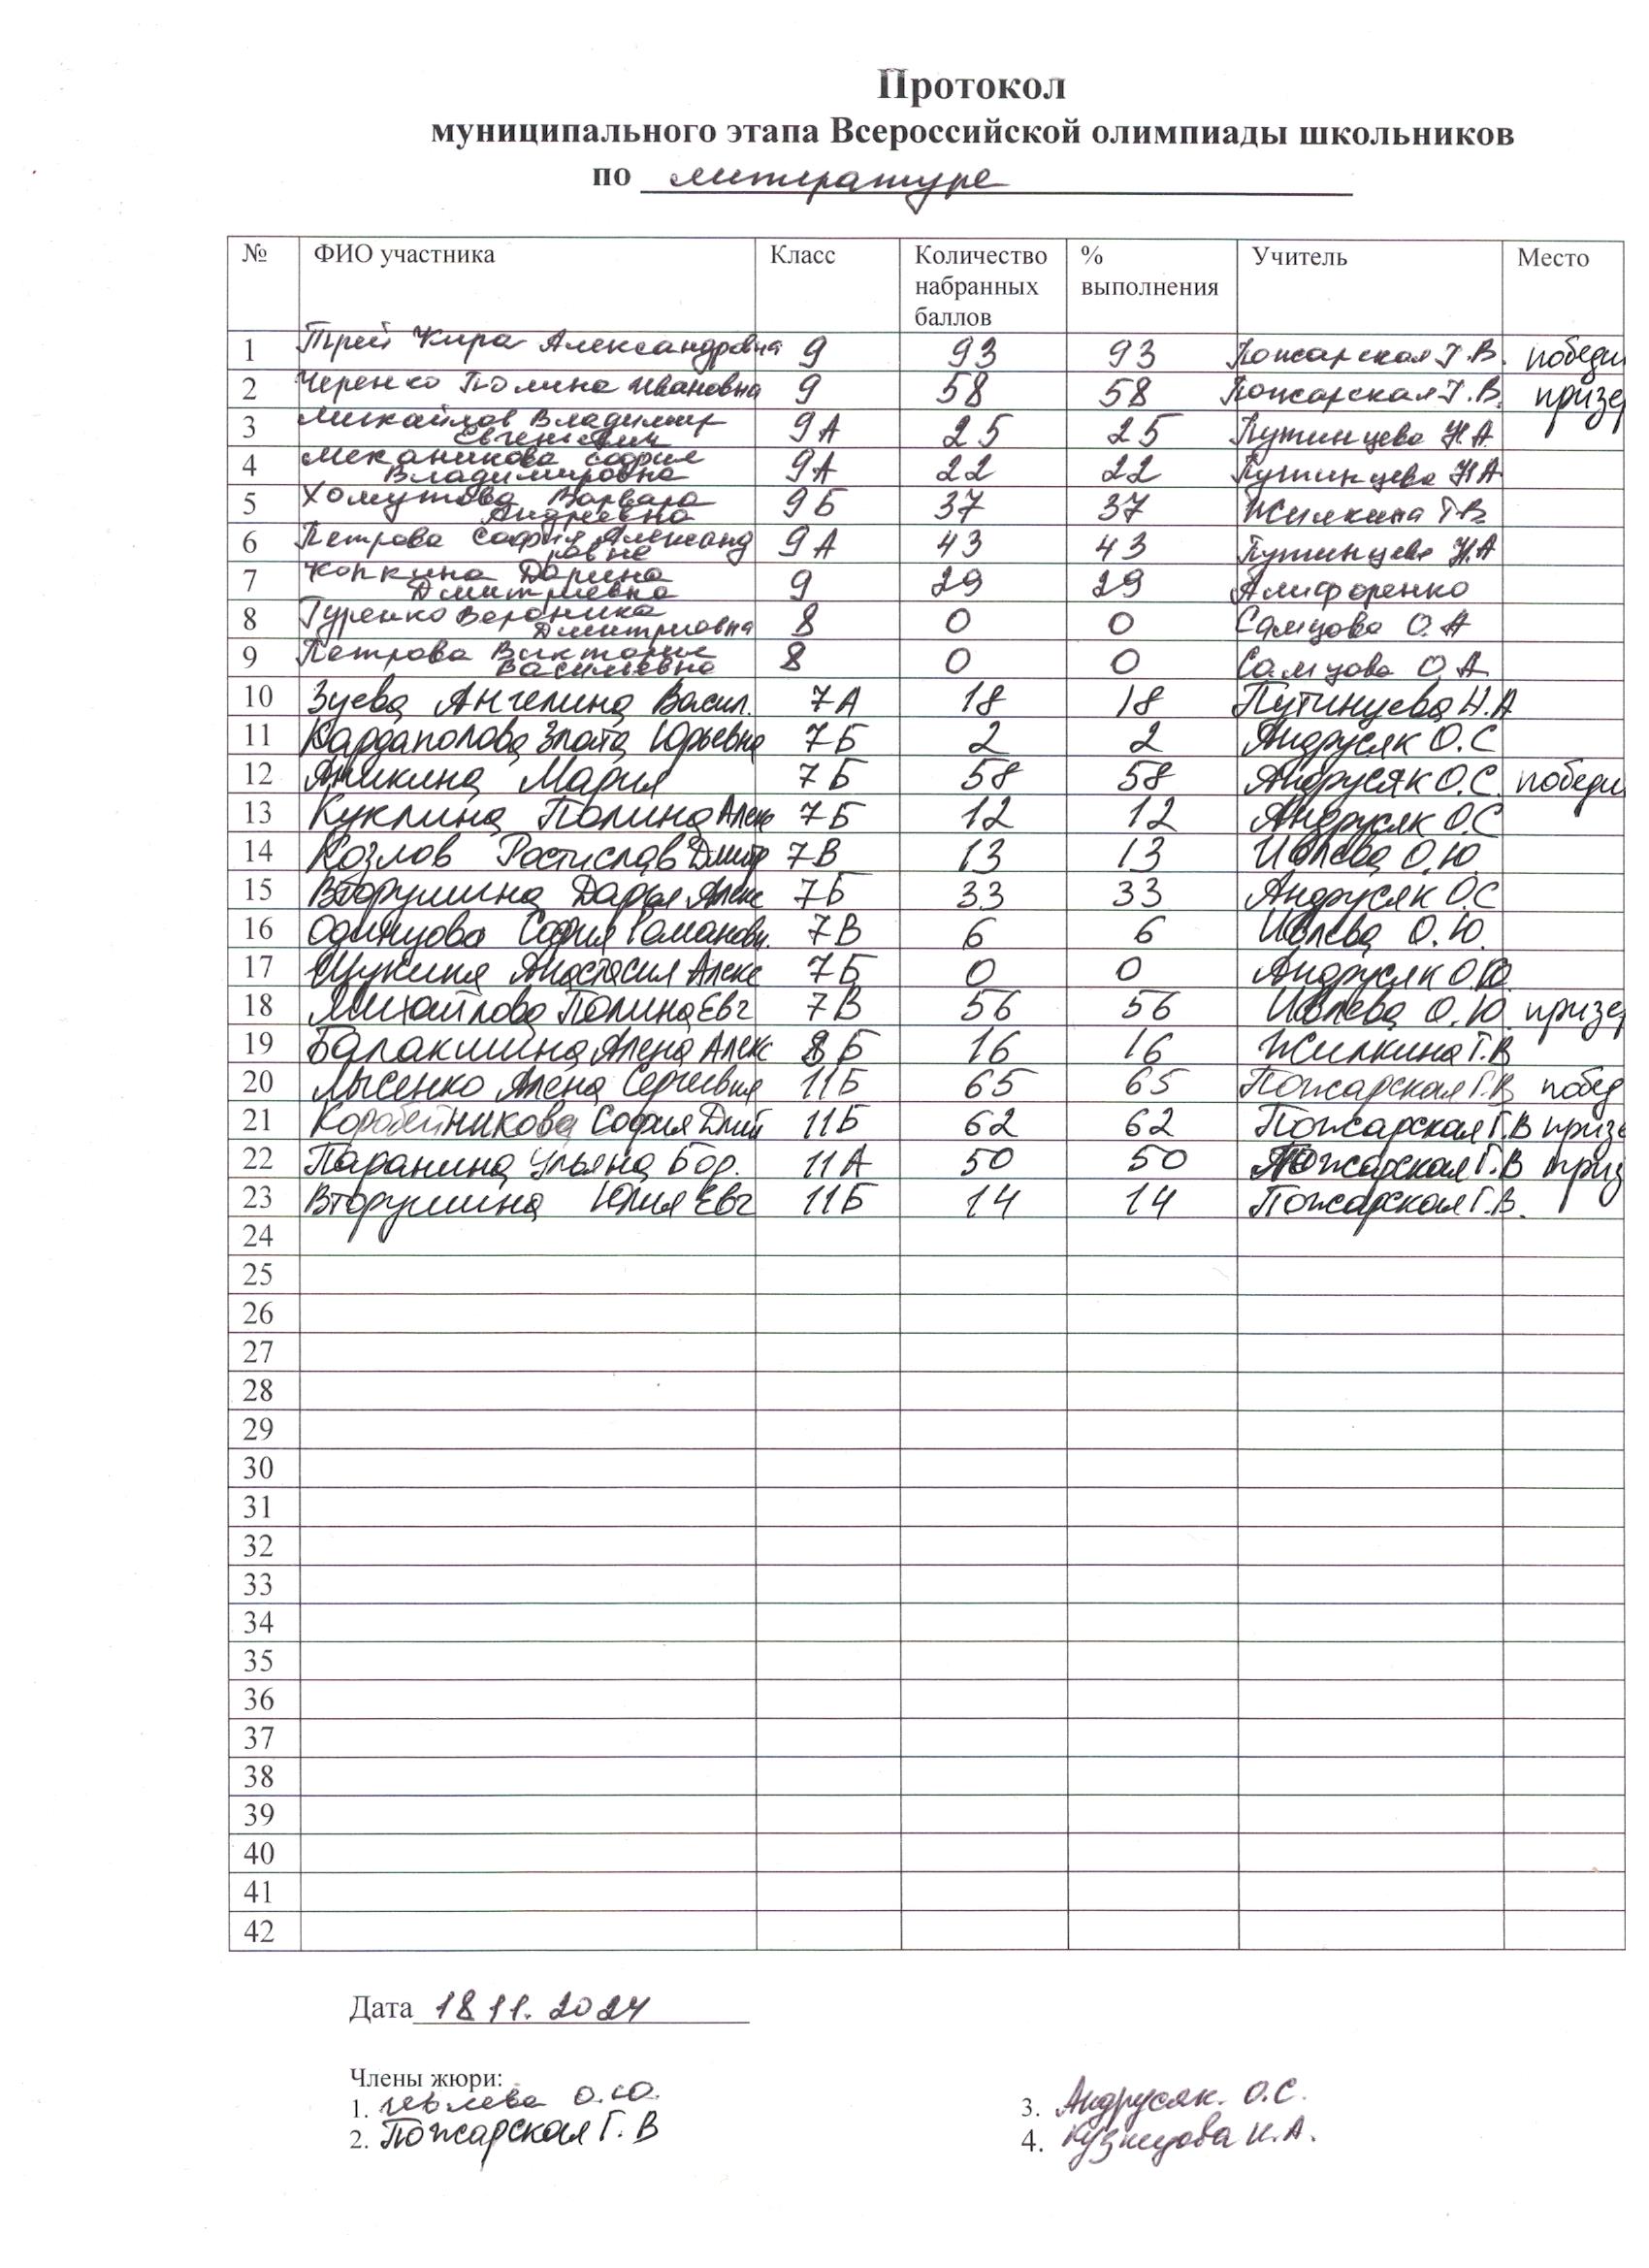 Протокол
муниципального этапа Всероссийской олимпиады школьников
по литературе
№ ФИО участника Класс Количество набранных баллов % выполнения Учитель Место
1 Трей Кира Александровна 9 93 93 Пожарская Г.В. победи
2 Черенко Полина Ивановна 9 58 58 Пожарская Г.В. призе
3 Михайлов Владимир Евгеньевич 9А 25 25 Путинцева Н.А
4 Механикова София Владимировна 9А 22 22 Путинцева Н.А
5 Хомутова Варвара Андреевна 9Б 37 37 Жилкина Т.В.
6 Петрова София Александровна 9А 43 43 Путинцева Н.А
7 Копкина Дарина Дмитриевна 9 29 29 Алифоренко
8 Гуренко Вероника Дмитриевна 8 0 0 Самцова О.А
9 Петрова Виктория Васильевна 8 0 0 Самцова О.А
10 Зуева Ангелина Васил. 7А 18 18 Путинцева Н.А
11 Кардаполова Злата Юрьевна 7Б 2 2 Андрусяк О.С
12 Аникина Мария 7Б 58 58 Андрусяк О.С. победи
13 Куклина Полина Алекс 7Б 12 12 Андрусяк О.С
14 Козлов Ростислав Дмитр 7В 13 13 Ивлева О.Ю.
15 Вторушина Дарья Алекс 7Б 33 33 Андрусяк О.С
16 Одинцова София Романовн. 7В 6 6 Ивлева О.Ю.
17 Щукина Анастасия Алекс 7Б 0 0 Андрусяк О.Ю.
18 Михайлова Полина Евг 7В 56 56 Ивлева О.Ю. призе
19 Балакшина Алена Алекс 8Б 16 16 Жилкина Т.В
20 Лысенко Алена Сергеевна 11Б 65 65 Пожарская Г.В. побед
21 Коробейникова София Дмит 11Б 62 62 Пожарская Г.В призе
22 Паранина Ульяна Бор. 11А 50 50 Пожарская Г.В приз
23 Вторушина Юлия Евг 11Б 14 14 Пожарская Г.В.
24
25
26
27
28
29
30
31
32
33
34
35
36
37
38
39
40
41
42
Дата 18 11. 2024
Члены жюри:
1. Ивлева О.Ю. 3. Андрусяк. О.С.
2. Пожарская Г. В 4. Кузнецова Н.А.